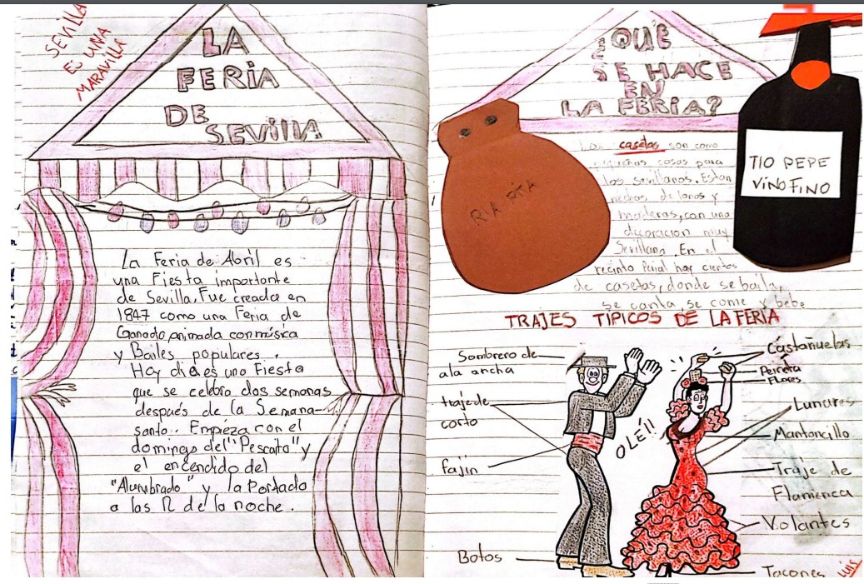 SEVILLA
ES UNA
MARAVILLA
LA
FERIA
DE
SEVILLA
La Feria de Abril es
una Fiesta importante
de Sevilla. Fue creada en
1847 como una Feria de
Ganado, animada con música
y Bailes populares.
Hoy día es una Fiesta
que se celebra dos semanas
después de la Semana
santa. Empieza con el
domingo del "Pescaíto" y
el encendido del
"Alumbrado" y la Portada
a las 12 de la noche.
¿QUÉ
SE HACE
EN
LA FERIA?
Las casetas son como
pequeñas casas para
los sevillanos. Están
hechas de lonas y
maderas, con una
decoración muy
Sevillana. En el
recinto ferial hay cientos
de casetas, donde se baila,
se canta, se come y bebe
RIA PITA
TIO PEPE
VINO FINO
TRAJES TÍPICOS DE LA FERIA
Sombrero de
ala ancha
traje de
corto
fajín
Botos
OLÉ!!
Castañuelas
Peineta
Flores
Lunares
Mantoncillo
Traje de
Flamenca
Volantes
Tacones
LUIS